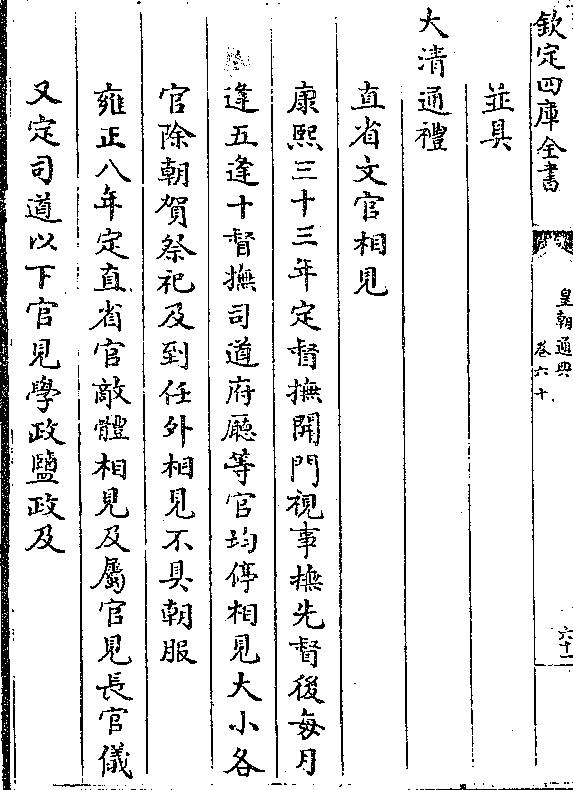 欽定四庫全書
皇朝通典
卷六十
六十一
並具
大清通禮
直省文官相見
康熙三十三年定督撫開門視事撫先督後每月
逢五逢十督撫司道府廳等官均停相見大小各
官除朝賀祭祀及到任外相見不具朝服
雍正八年定直省官敵體相見及屬官見長官儀
又定司道以下官見學政鹽政及